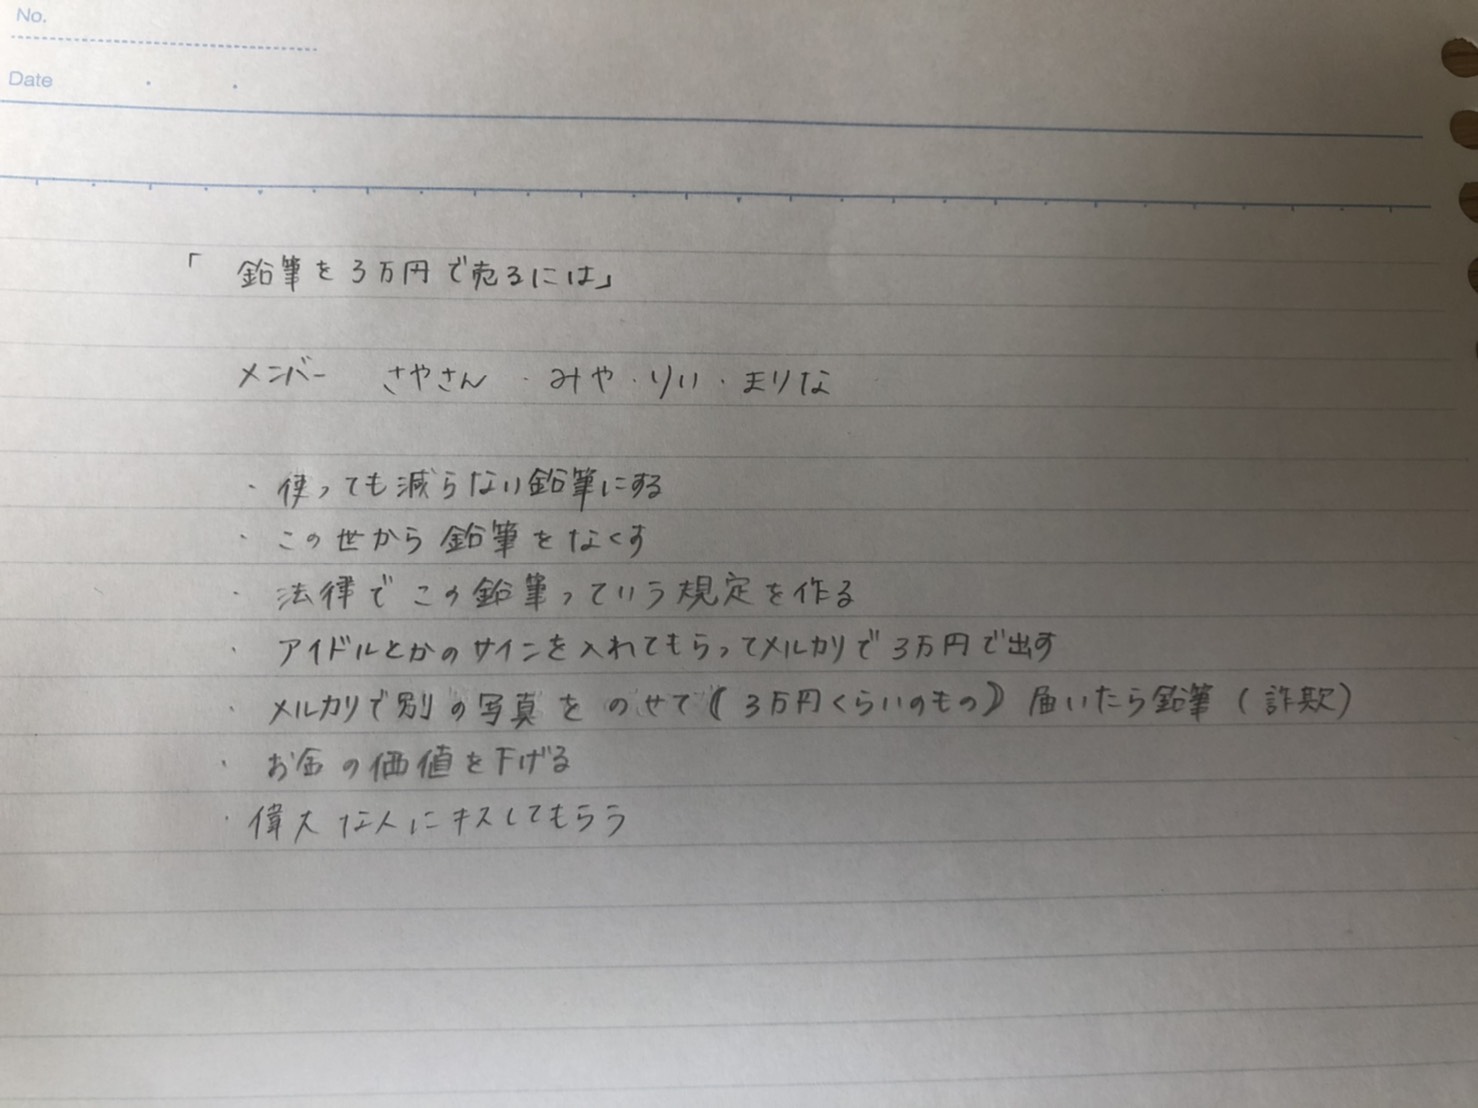 No.
Date
「鉛筆を3万円で売るには」
メンバー さやさん・みや・りい・まりな
・使っても減らない鉛筆にする
・この世から鉛筆をなくす
・法律でこの鉛筆っていう規定を作る
・アイドルとかのサインを入れてもらってメルカリで3万円で出す
・メルカリで別の写真をのせて(3万円くらいのもの)届いたら鉛筆(詐欺)
・お金の価値を下げる
・偉大な人にキスしてもらう